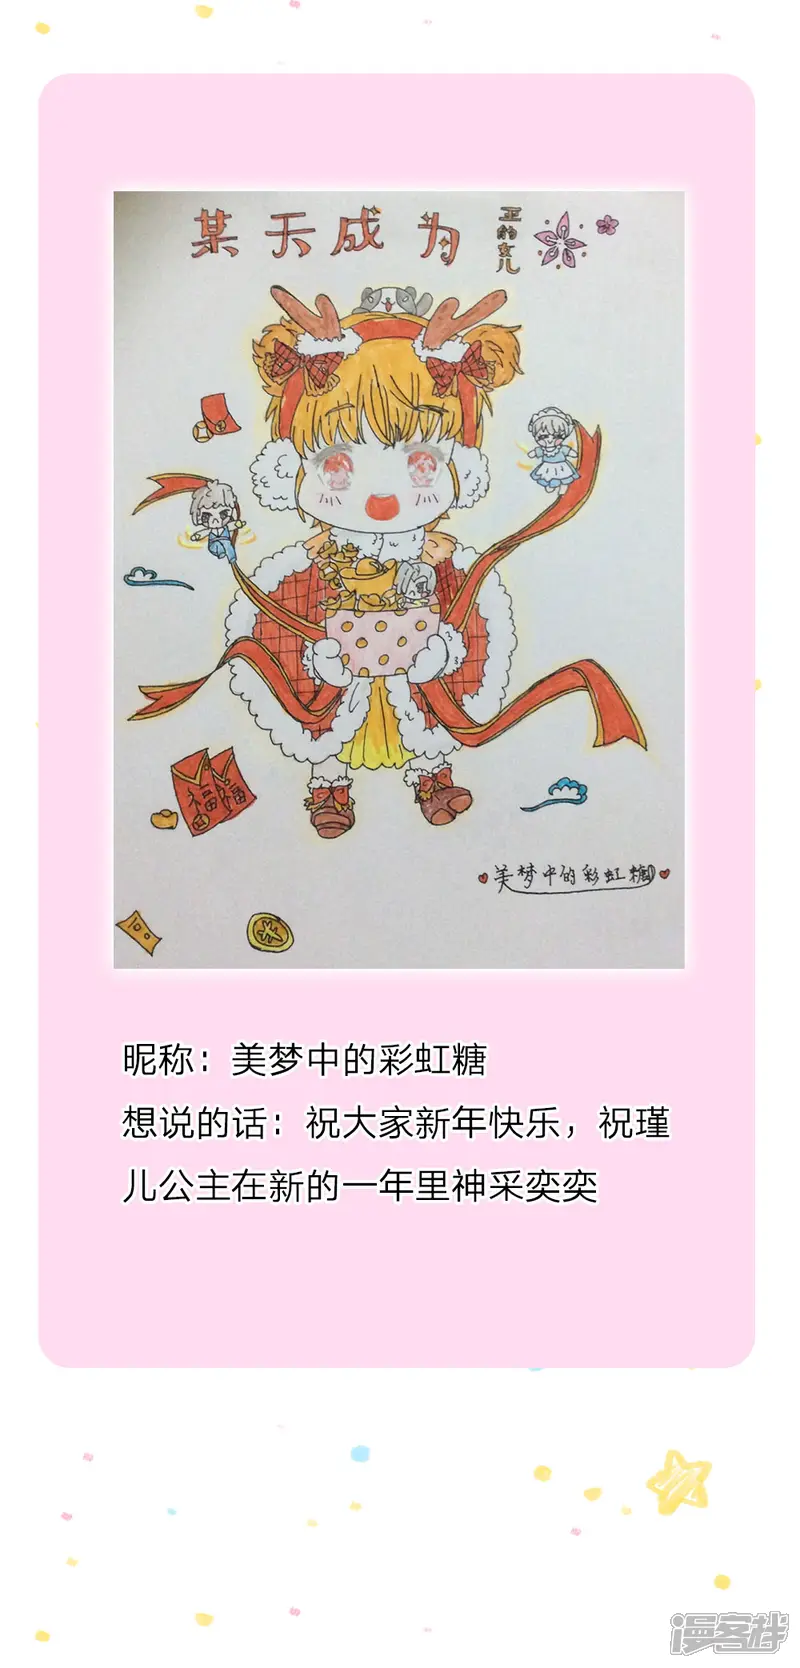 某天成为
王的女儿
福福
100
美梦中的彩虹糖
昵称：美梦中的彩虹糖
想说的话：祝大家新年快乐，祝瑾
儿公主在新的一年里神采奕奕
漫客栈